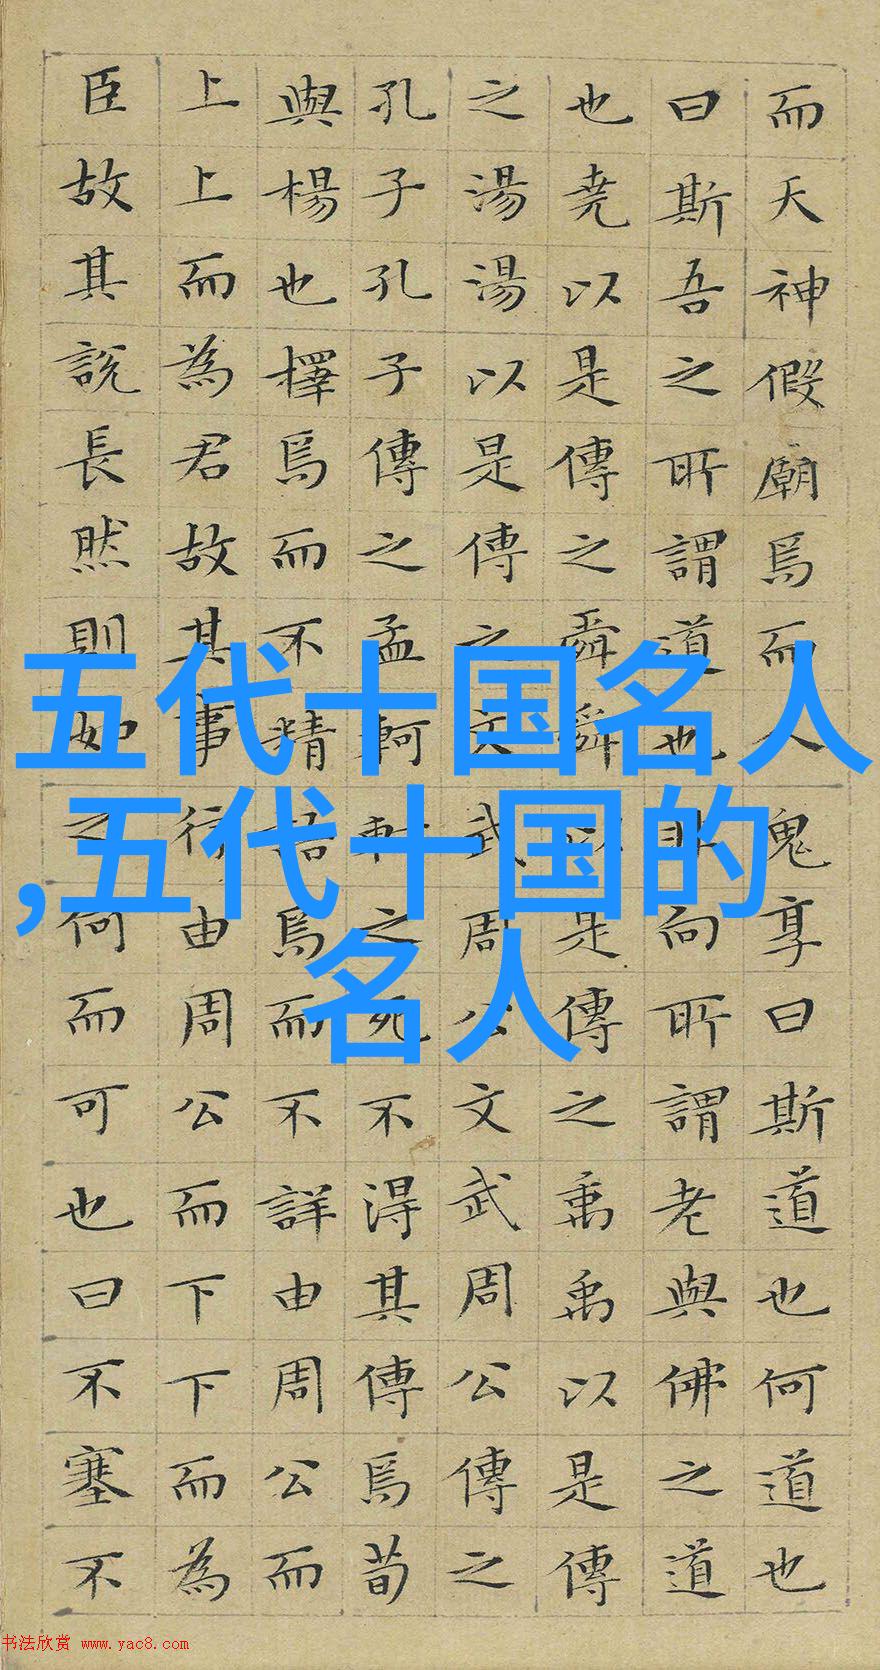 而天神假廟焉而人鬼享曰斯道也何道也
曰斯吾之所謂道也非向所謂老與佛之道
也堯以是傳之舜舜以是傳之禹禹以是傳
之湯湯以是傳之文武周公文武周公傳之
孔子孔子傳之孟軻軻之死不得其傳焉荀
與楊也擇焉而不精語焉而不詳由周公而
上上而為君故其事行由周公而下下而為
臣故其說長然則如之何而可也曰不塞不
五代十国名人
,五代十国的
名人
书法欣赏 www.yac8.com